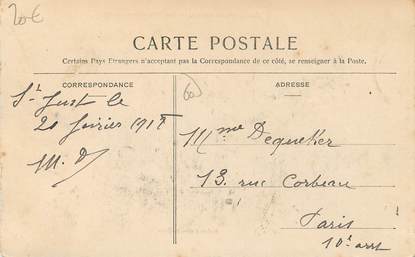 20€
CARTE POSTALE
Certains Pays Etrangers n'acceptant pas la Correspondance de ce côté, se renseigner à la Poste.
CORRESPONDANCE
St Just le
20 février 1918
M. D
60
ADRESSE
Mme Dequeker
13. rue Corbeau
Paris
10e arrt